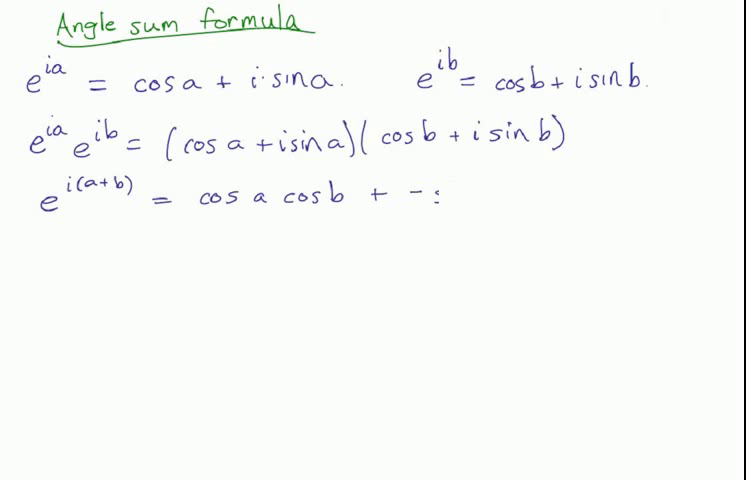 Angle sum formula
e^{ia} = cos a + i·sin a. e^{ib} = cos b + i sin b.
e^{ia} e^{ib} = (cos a + i sin a)(cos b + i sin b)
e^{i(a+b)} = cos a cos b + -